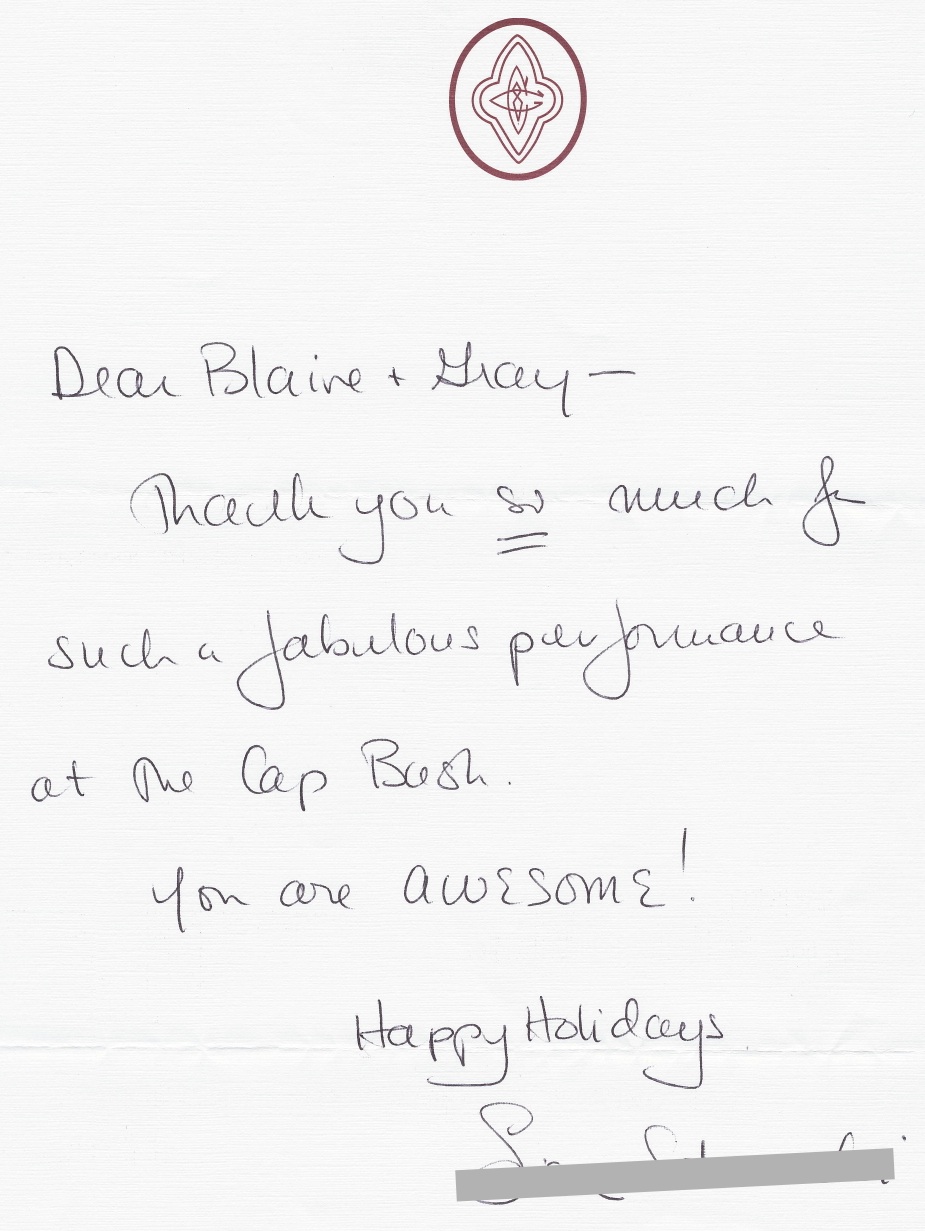 Dear Blaine + Gray —
Thank you so much for
such a fabulous performance
at the Cap Bash.
you are awesome!
Happy Holidays